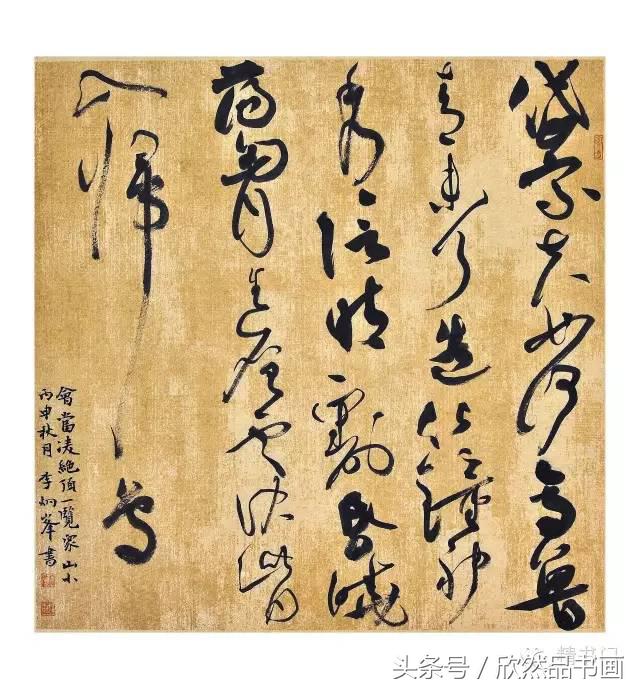 岱宗夫如何齊魯
青未了造化鍾神
秀陰陽割昏曉
蕩胸生層雲決眥
入歸鳥
會當凌絕頂一覽眾山小
丙申秋月 李炯峯書
精书门
头条号 / 欣然品书画